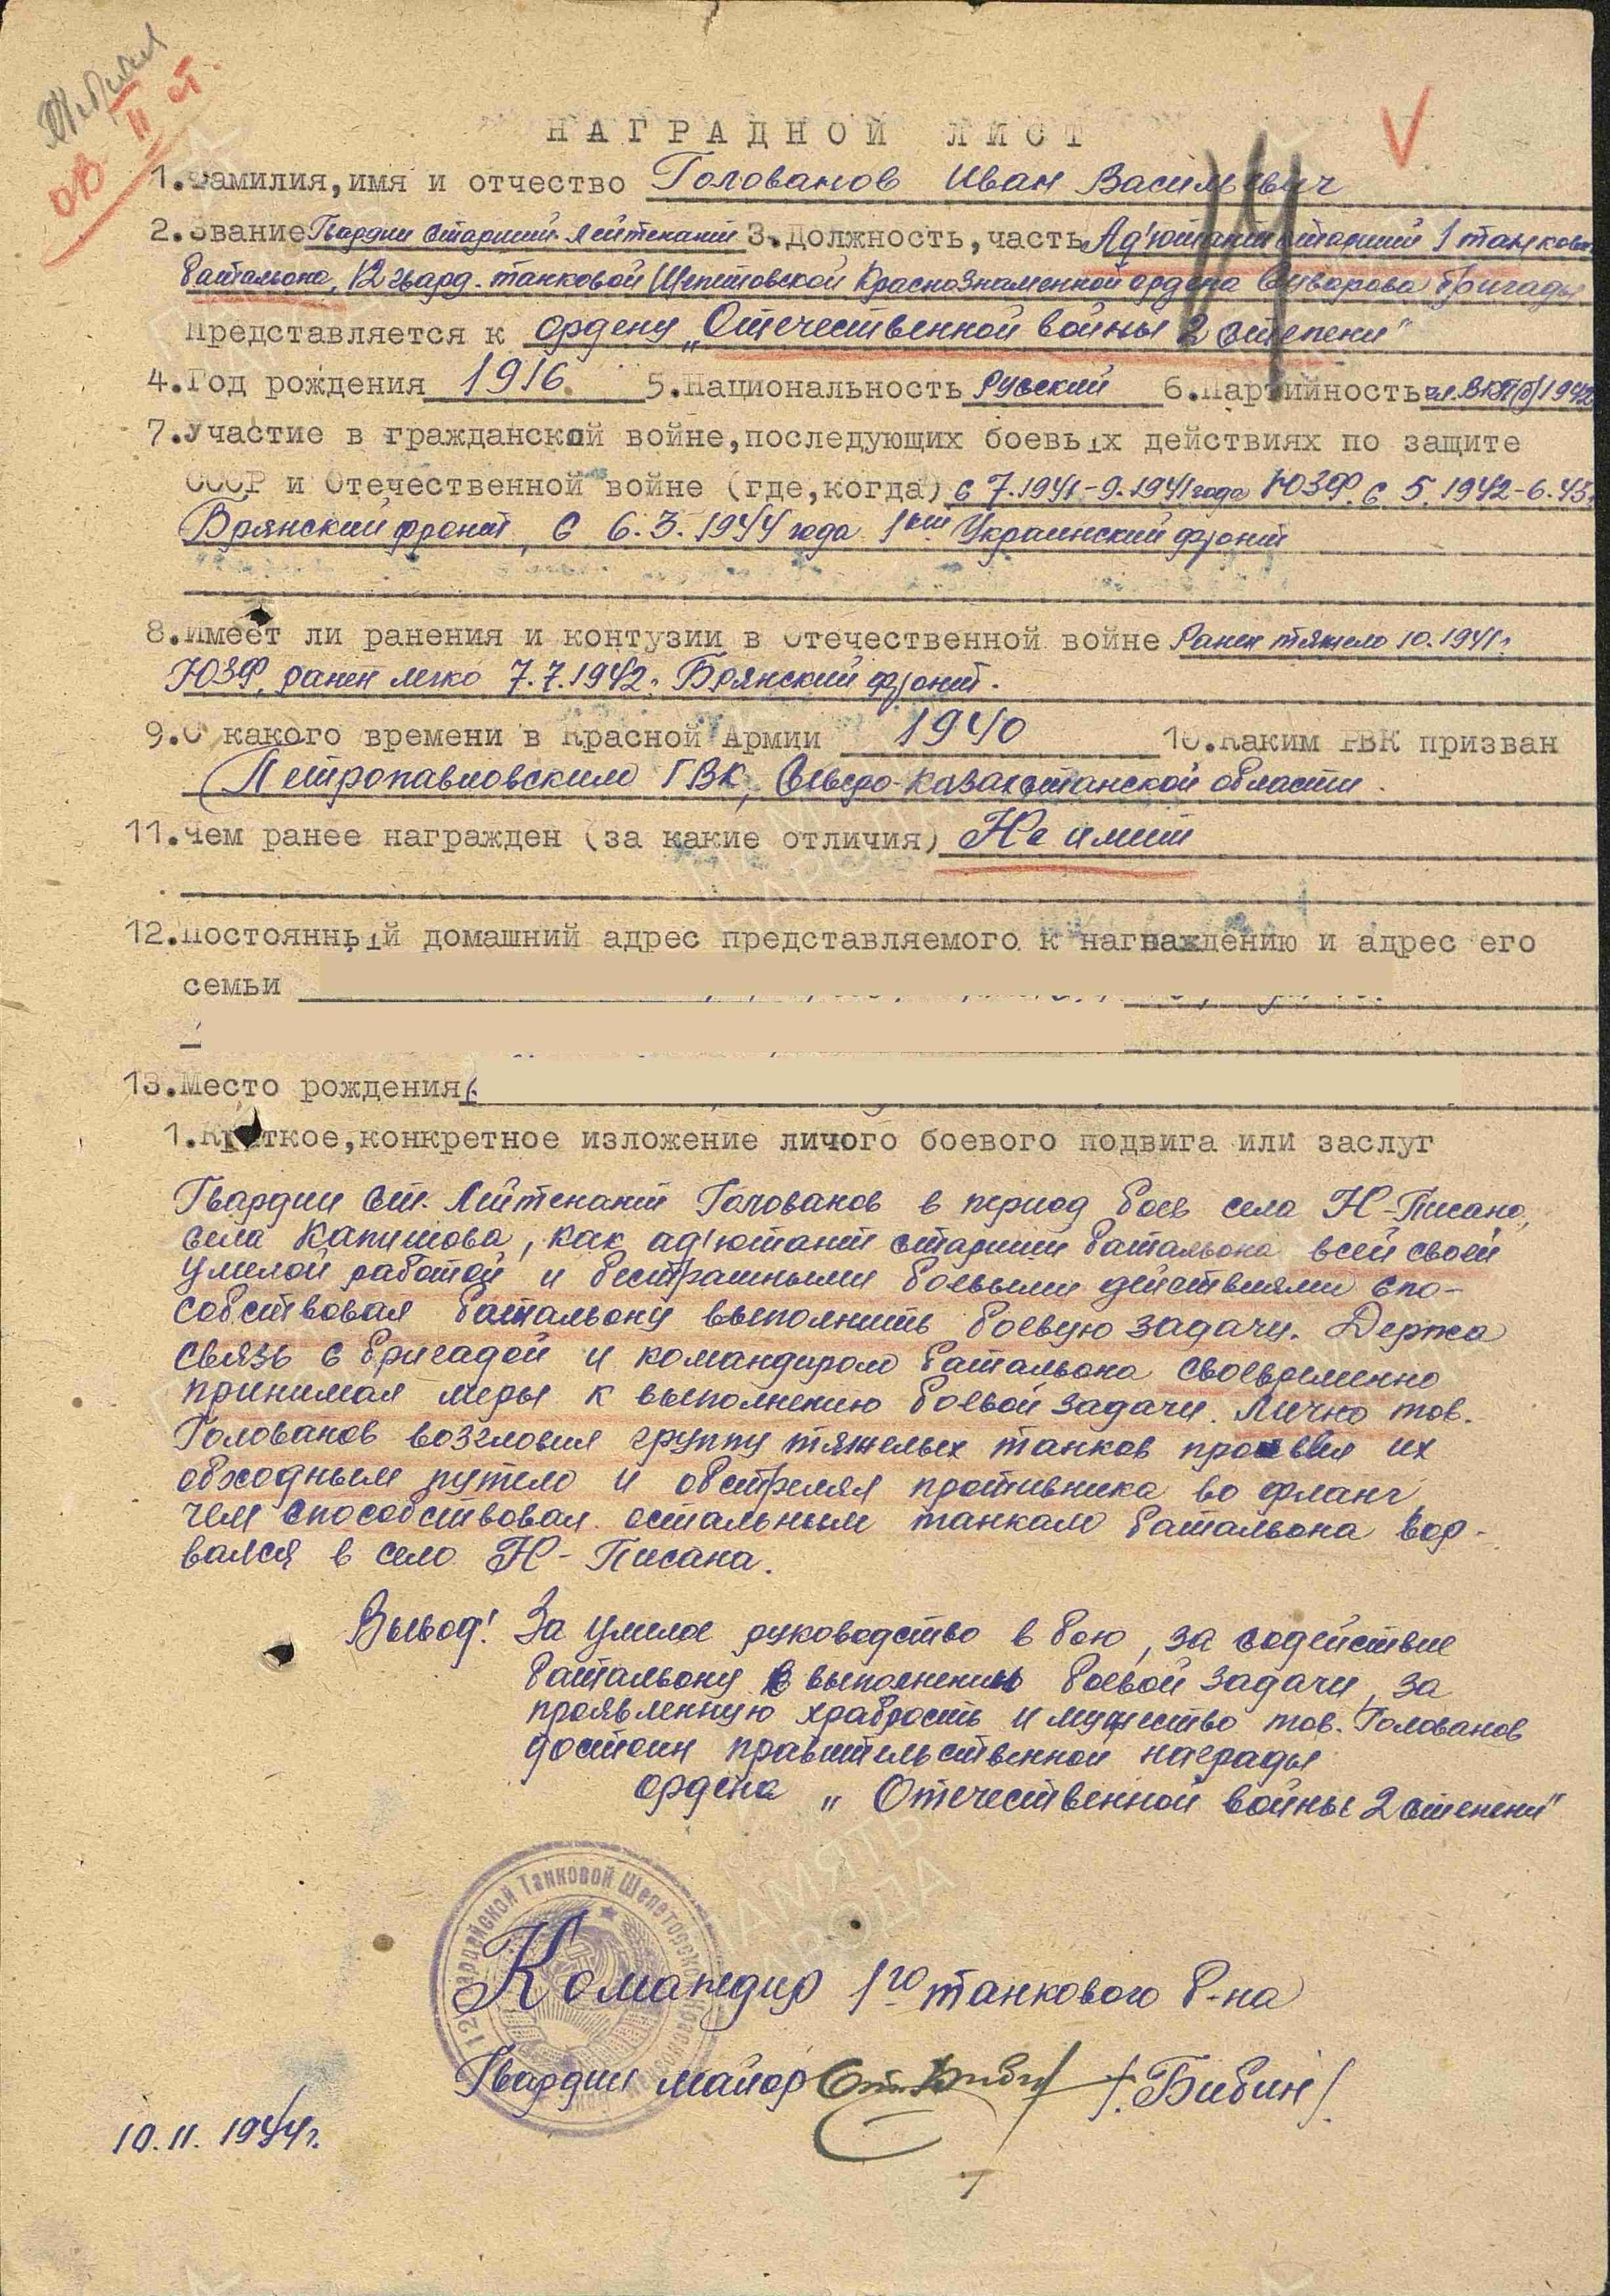 ОВ II ст
НАГРАДНОЙ ЛИСТ
1. Фамилия, имя и отчество Голованов Иван Васильевич
2. Звание Гвардии старший лейтенант 3. Должность, часть Ад'ютант старший 1 танково
батальона, 12 гвард. танковой Шепетовской Краснознаменной ордена Суворова бригады
Представляется к ордену „Отечественной войны 2 степени"
4. Год рождения 1916. 5. Национальность русский 6. Партийность чл. ВКП(б) 1942
7. Участие в гражданской войне, последующих боевых действиях по защите
СССР и Отечественной войне (где, когда) с 7.1941-9.1941 года ЮЗФ. с 5.1942-6.43г
Брянский фронт, с 6.3.1944 года 1ый Украинский фронт
8. Имеет ли ранения и контузии в Отечественной войне Ранен тяжело 10.1941г.
ЮЗФ, ранен легко 7.7.1942г. Брянский фронт.
9. С какого времени в Красной Армии 1940 10. Каким РВК призван
Петропавловским ГВК, Северо-Казахстанской области.
11. Чем ранее награжден (за какие отличия) Не имеет
12. Постоянный домашний адрес представляемого к награждению и адрес его
семьи
13. Место рождения
1. Краткое, конкретное изложение личого боевого подвига или заслуг
Гвардии ст. Лейтенант Голованов в период боев села Н-Писано,
села Капишова, как ад'ютант старший батальона всей своей
умелой работой и бестрашными боевыми действиями спо-
собствовал батальону выполнить боевую задачу. Держа
связь с бригадой и командиром батальона своевременно
принимал меры к выполнению боевой задачи. Лично тов.
Голованов возглавил группу тяжелых танков провел их
обходным путем и обстрелял противника во фланг,
чем способствовал остальным танкам батальона вор-
вался в село Н-Писана.
Вывод: За умелое руководство в бою, за содействие
батальону в выполнении боевой задачи, за
проявленную храбрость и мужество тов. Голованов
достоин правительственной награды
ордена „Отечественной войны 2 степени"
12 Гвардейской Танковой Шепетовской
Командир 1го танкового б-на
Гвардии майор /Бибин/.
10.11.1944г.
ПАМЯТЬ
НАРОДА